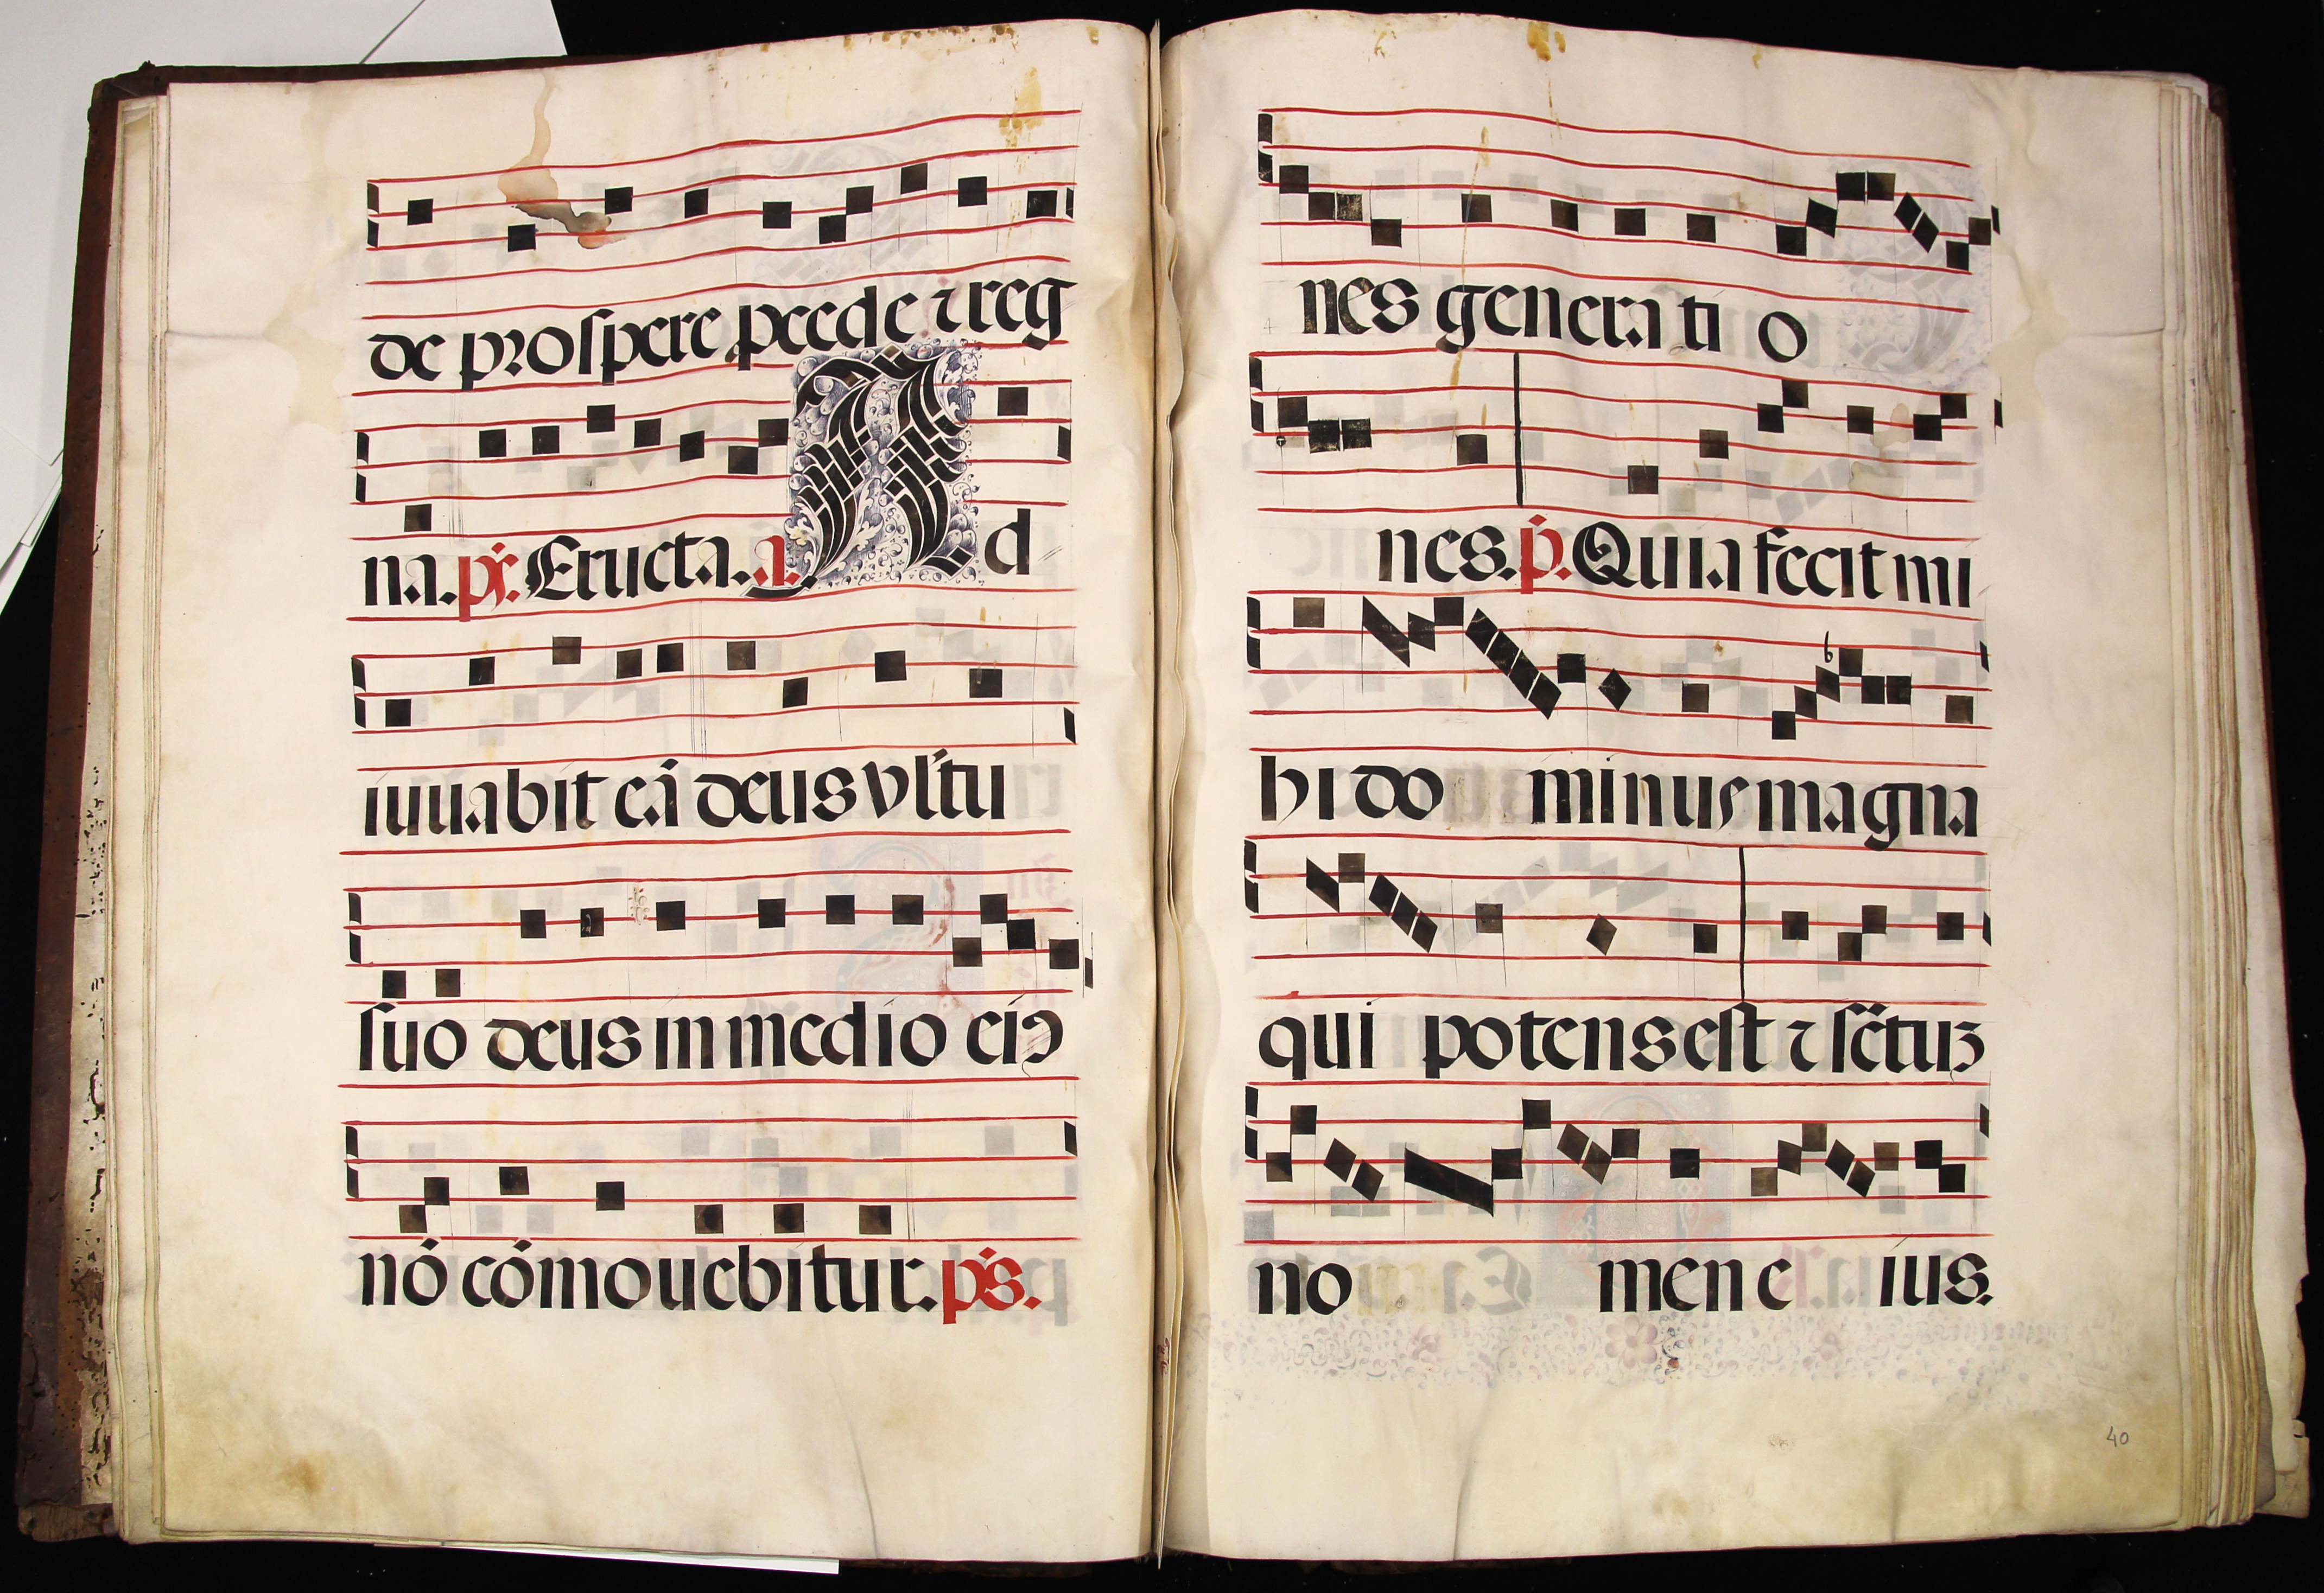 de prospere pcede ⁊ reg
na. ps. Eructa. a. Ad
iuuabit eā deus vultu
suo deus in medio eiꝰ
nō cōmouebitur. ps.
nes generatio
nes. p. Quia fecit mi
hi dominus magna
qui potens est ⁊ sctuz
nomen eius.
40